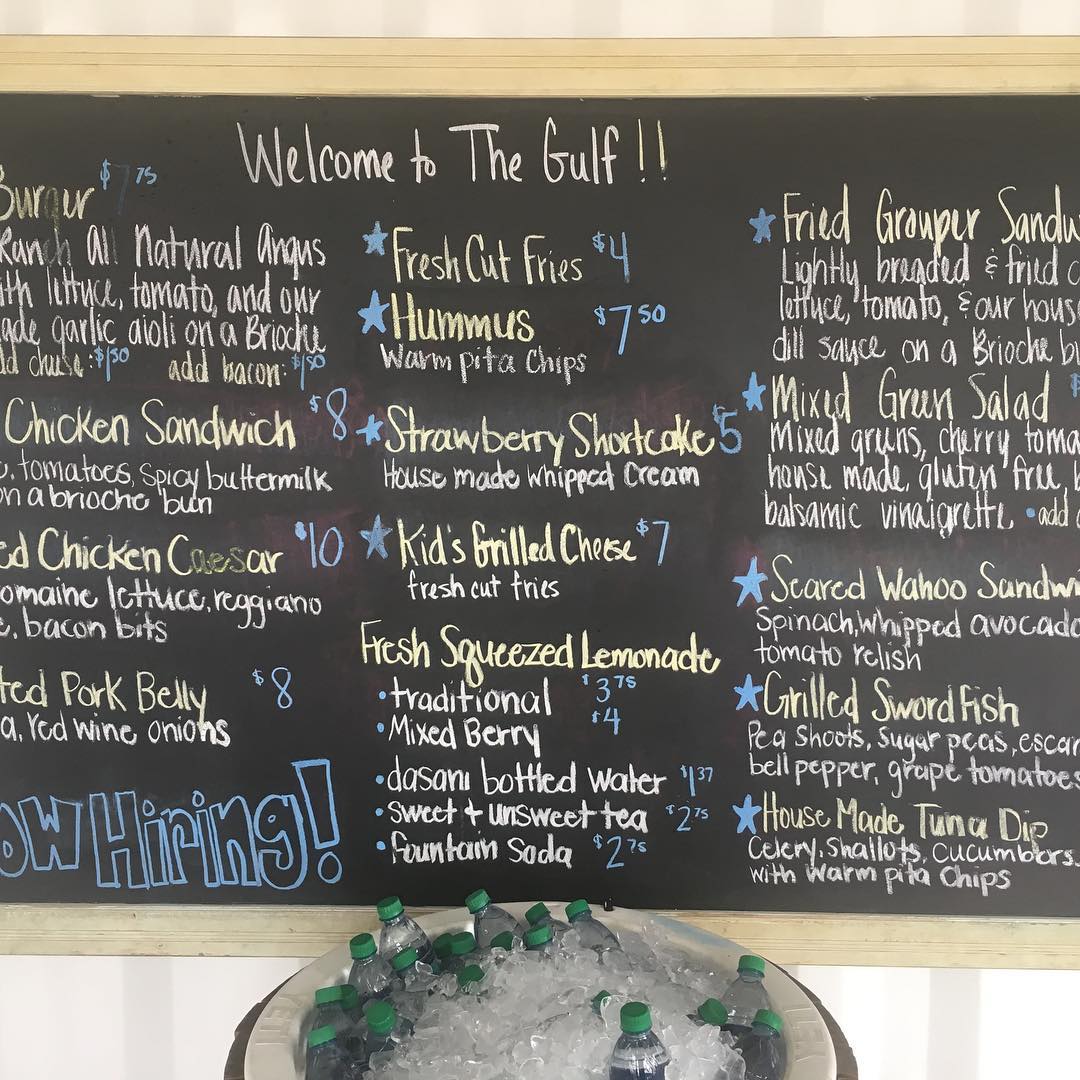 Welcome to The Gulf !!
Burger $7.75
Ranch All Natural Angus
lettuce, tomato, and our
garlic aioli on a Brioche
cheese: $1.50 add bacon: $1.50
Chicken Sandwich $8
tomatoes, spicy buttermilk
on a brioche bun
Chicken Caesar $10
lettuce, reggiano
bacon bits
Pork Belly $8
red wine onions
Hiring!
Fresh Cut Fries $4
Hummus $7.50
Warm pita Chips
Strawberry Shortcake $5
House made whipped cream
Kid's Grilled Cheese $7
fresh cut fries
Fresh Squeezed Lemonade
• traditional $3.75
• Mixed Berry $4
• dasani bottled water $1.37
• sweet + unsweet tea $2.75
• fountain Soda $2.75
Fried Grouper
Lightly breaded & fried
lettuce, tomato, & our house
dill sauce on a Brioche
Mixed Green Salad
Mixed greens, cherry
house made, gluten free,
balsamic vinaigrette • add
Seared Wahoo
Spinach, whipped avocado
tomato relish
Grilled Swordfish
Pea shoots, sugar peas,
bell pepper, grape tomatoes
House Made Tuna Dip
Celery, Shallots, cucumbers,
with warm pita chips